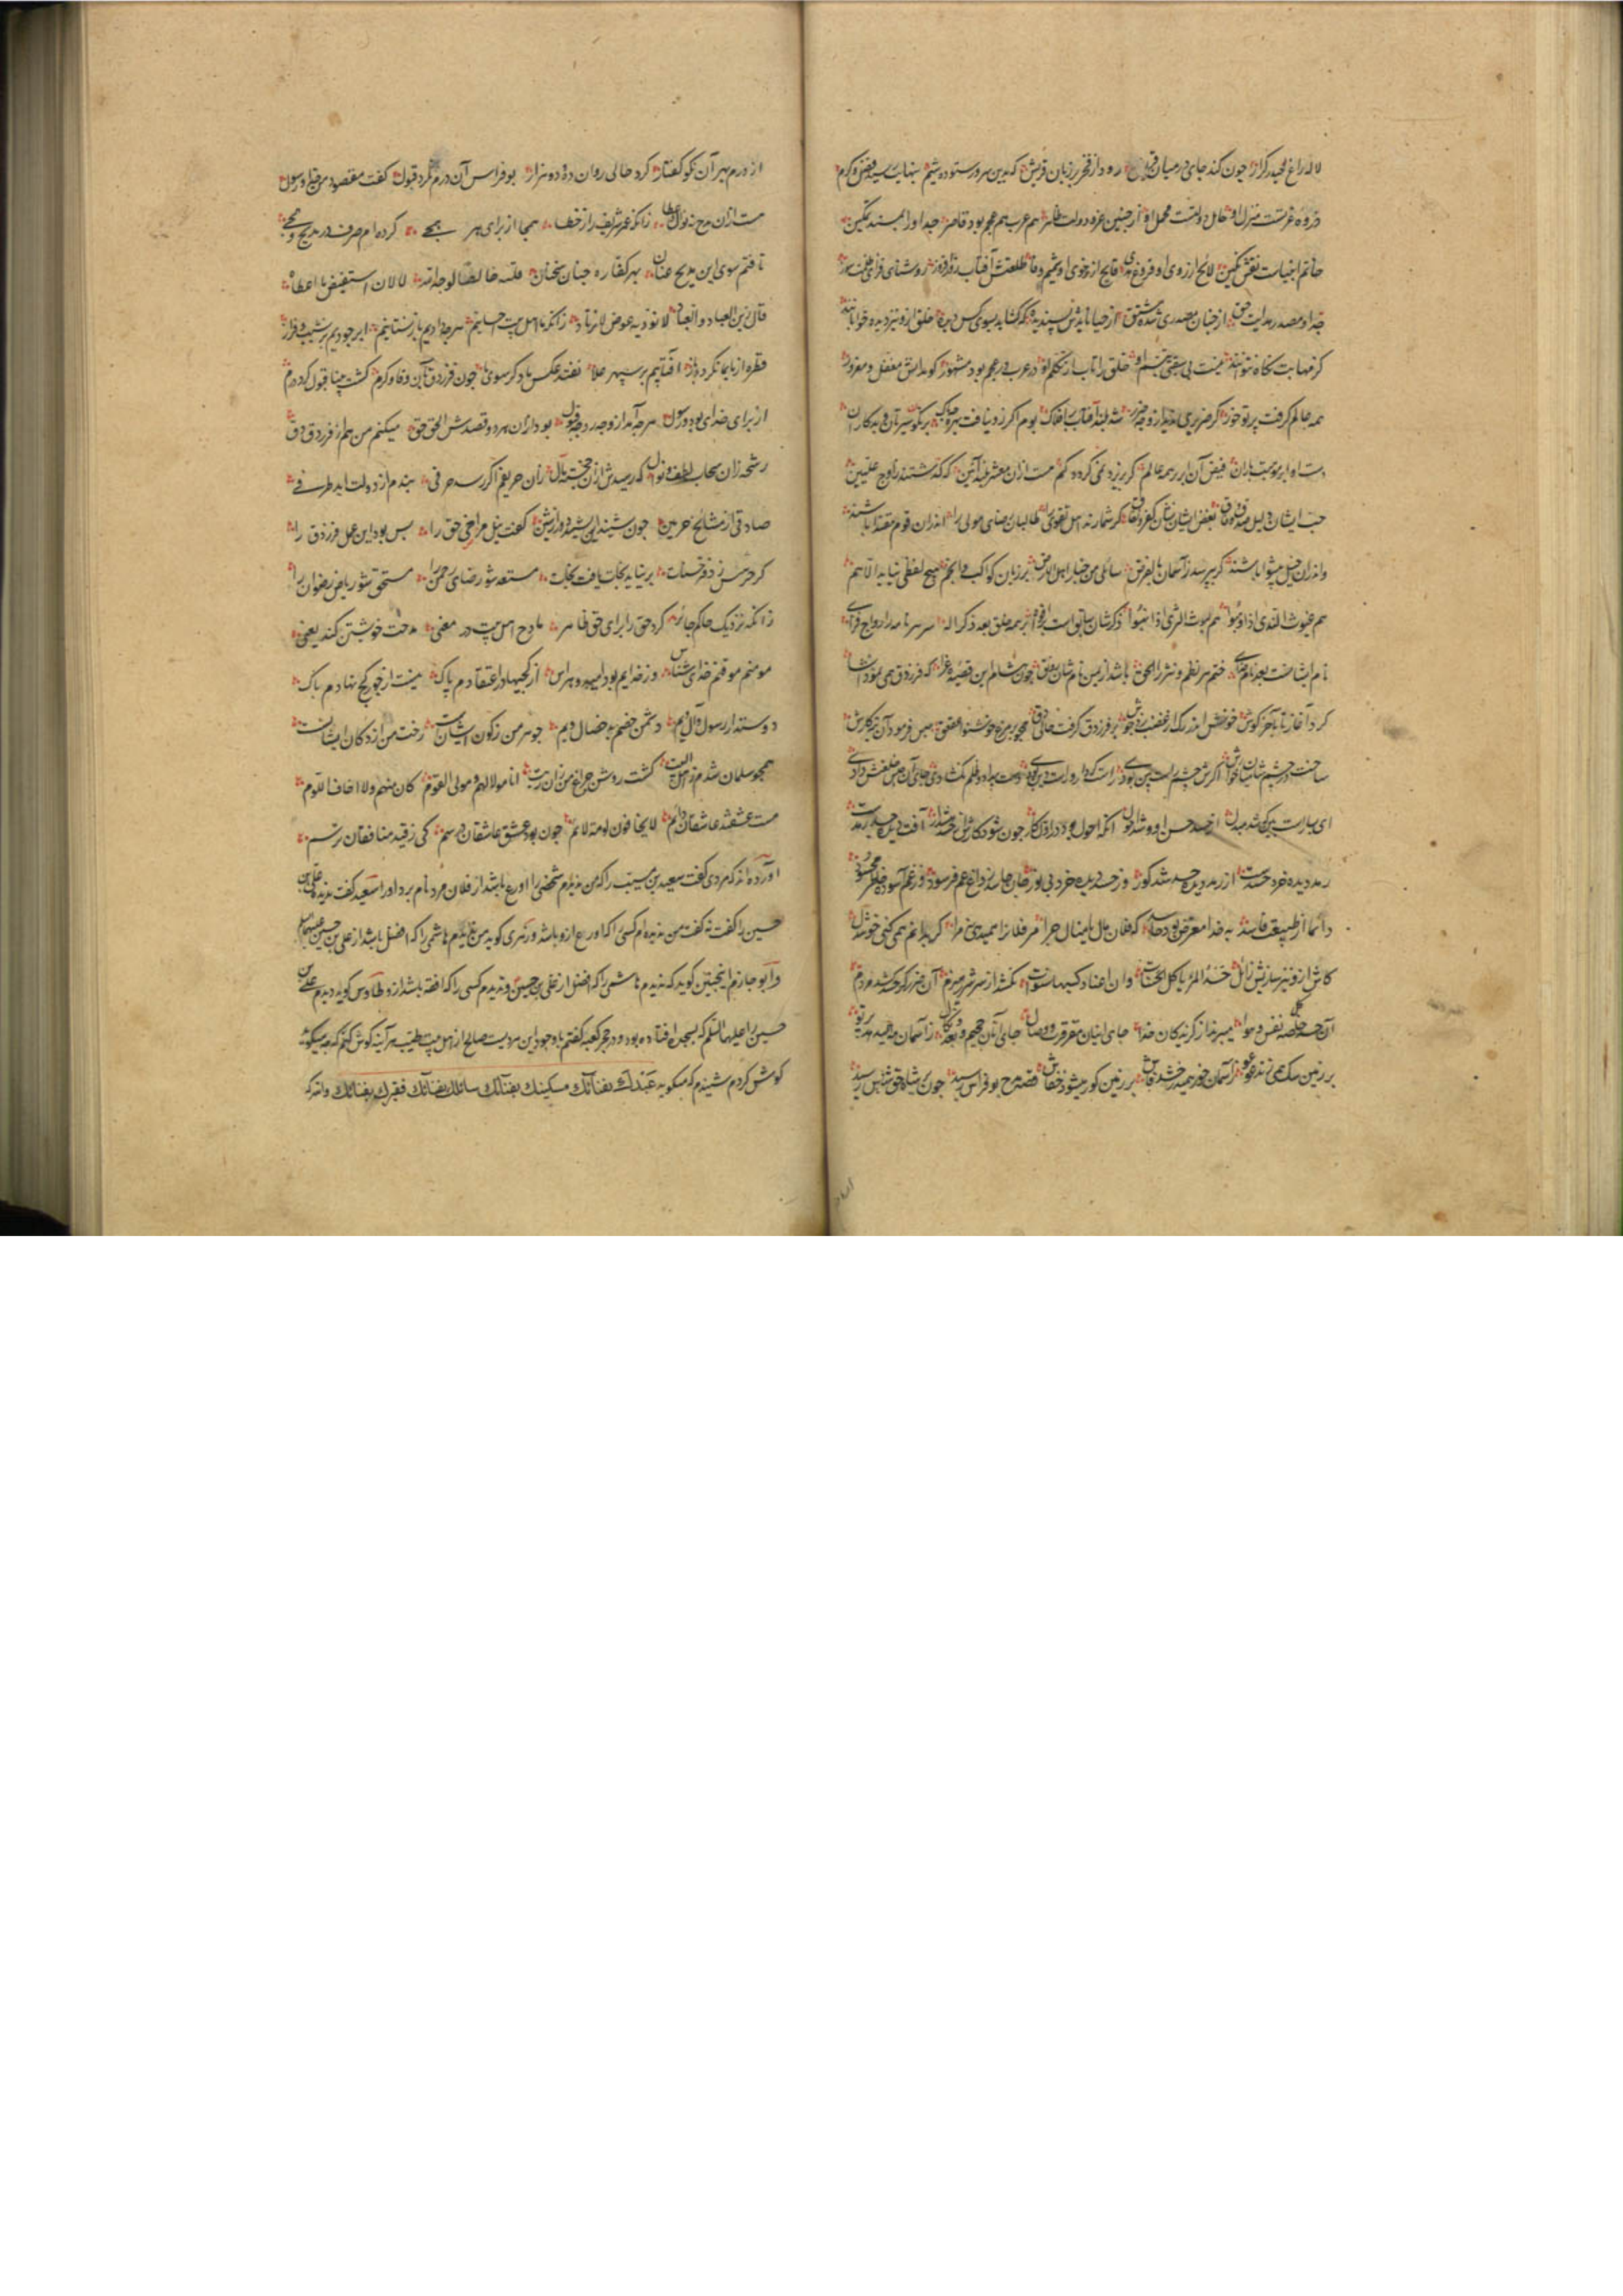 لاله راغ حیدر کرار چون کند جای در میان قریش رود از فخر بر زبان قریش که بدین سرور ستوده شیم بنهایت رسید فضل و کرم
ذروه عزتست منزل او حامل دولتست محمل او از چنین عز و دولت ظاهر هم عرب هم عجم بود قاصر جد او را بمسند تمکین
خاتم انبیاست نقش نگین لایح از روی او فروغ هدی فایح از خوی او شمیم وفا طلعتش آفتاب روز افروز روشنائی فزای ظلمت سوز
جد او مصدر هدایت حق از چنان مصدری شده مشتق از حیا نایدش پسندیده که گشاید بسوی کس دیده خلق ازو نیز دیده خوابانند
کز مهابت نگاه نتوانند نیست بی سبقت تبسم او خلق را تاب در تکلم او در عرب در عجم بود مشهور گو مدانش مغفل و مغرور
همه عالم گرفت پرتو خور گر ضریری ندید ازو چه ضرر شد بلند آفتاب بر افلاک بوم اگر زو نیافت بهره چه باک بر نکو سیرتان و بدکاران
دست او ابر موهبت باران فیض آن ابر بر همه عالم گر بریزد نمی نگردد کم هست ازان معشر بلند آئین که گذشتند ز اوج علیین
حب ایشان دلیل صدق و وفاق بغض ایشان نشان کفر و نفاق گر شمارند اهل تقوی را طالبان رضای مولی را اندران قوم مقتدا باشند
واندران خیل پیشوا باشند گر بپرسد ز آسمان بالفرض سائلی من خیار اهل الارض بر زبان کواکب و انجم هیچ لفظی نیاید الا هم
هم غیوث الندی اذا وهبوا هم لیوث الشری اذا نهبوا ذکرشان سابق است در افواه بر همه خلق بعد ذکر الله سر هر نامه را رواج فزای
نام ایشانست بعد نام خدای ختم هر نظم و نثر را الحق باشد از یمن نامشان رونق چون هشام این قصیده غرا که فرزدق همی نمود انشا
کرد از آغاز تا بآخر گوش خونش اندر رگ از غضب زد جوش بر فرزدق گرفت حالی دق همچو بر مرغ خوشنوا عقعق
ساخت در چشم شامیان خوارش حبس فرمود بهر آن کارش اگرش چشم راست بین بودی راست کردار و راست دین بودی دست بیداد و ظلم نگشادی جای آن حبس خلعتش دادی
ای بسا راست بین که شد مبدل از حسد حس او و شد احول آنکه احول بود در اول کار چون شود کارش از حسد هشدار آفت دیده حسد رمدست
رمد دیده خرد حسدست از رمد دیده حسد شد کور وز حسد دیده خرد بی نور جان حاسد ز داغ غم فرسود وز غم آسوده خاطر محسود
دائما از طبیعت فاسد به خدا معرض بود حاسد که فلان مال یا منال چرا مر فلان را همی دهی نه مرا گر بدانم نمی کنی خوشدل
کاش ازو نیز سازیش زائل حسد المرء یاکل الحسنات
بر زمین سگ همی زند عوعو ز آسمان خور همی درخشد فاش بر زمین کور میشود خفاش قصه مدح بوفراس رشید چون بدان شاه حق شناس رسید
از درم بهر آن نکو گفتار کرد حالی روان ده و دو هزار بوفراس آن درم نکرد قبول گفت مقصود من خدا و رسول
هست ازان مدح نه نوال و عطا زانکه عمر شریف را ز خطا همجا از برای هر همجی کرده ام صرف در مدیح و هجی
تافتم سوی این مدیح عنان بهر کفاره چنان سخنان قلته خالصا لوجه الله لا لان استفیض ما اعطاه
قال زین العباد و العباد لا نؤدیه عوض لا نرتاد زانکه ما اهل بیت احسانیم هر چه دادیم باز نستانیم ابر جودیم بر نشیب و فراز
قطره از ما بما نگردد باز آفتابیم بر سپهر علا نفتد عکس ما دگر سوی ما چون فرزدق بآن وفا و کرم گشت بینا قبول کرد درم
از برای خدای بود و رسول هر چه آمد از وجه رد و چه قبول بود ازان هر دو قصدش الحق حق میکنم من هم از فرزدق دق
رشحه زان سحاب لطف و نوال که رسیدش ازان خجسته مآل زان حریفم اگر رسد حرفی بندم از دولت ابد طرفی
صادقی از مشایخ حرمین چون شنید آن نشید دور از شین گفت نیل مراضی حق را بس بود این عمل فرزدق را
گر جز اینش ز دفتر حسنات بر نیاید نجات یافت نجات مستعد شد رضای رحمن را مستحق شد ریاض رضوان را
زانکه نزدیک حاکم جائر کرد حق را برای حق ظاهر مادح اهل بیت در معنی مدحت خویشتن کند یعنی
مومنم موقنم خدای شناس وز خدایم بود امید و هراس از کجیها در اعتقادم پاک نیست از خوی کج نهادم باک
دوستدار رسول و آل ویم دشمن خصم بد خصال ویم جوهر من ز کان ایشانست رخت من از دکان ایشانست
همچو سلمان شدم ز اهل البیت گشت روشن چراغ من زان زیت انا مولاهم و مولی القوم کان منهم و لا اخاف اللوم
مست عشقند عاشقان دایم لا یخافون لومة لائم چون بود عشق عاشقان در سم کی ز قید منافقان ترسم
آورده اند که مردی گفت سعید بن مسیب را که من ندیدم شخصی را اورع باشد از فلان مرد نام برد او را سعید گفت ندیده علی بن
حسین را گفت نه گفت من ندیده ام کسی را که اورع ازو باشد و زهری گوید من ندیدم هاشمی را که افضل باشد از علی بن حسین علیهما السلام
و ابو حازم اینچنین گوید که ندیدم هاشمی را که افضل از علی بن حسین و ندیدم کسی را که افقه باشد ازو و طاوس گوید دیدم علی بن
حسین را علیهما السلم که بسجده افتاده بود در حجر کعبه گفتم با وجود این مردیست صالح از اهل بیت طیب هر آینه گوش کنم که چه میگوید
گوش کردم شنیدم که میگوید عبدک بفنائک مسکینک بفنائک سائلک بفنائک فقیرک بفنائک والله که